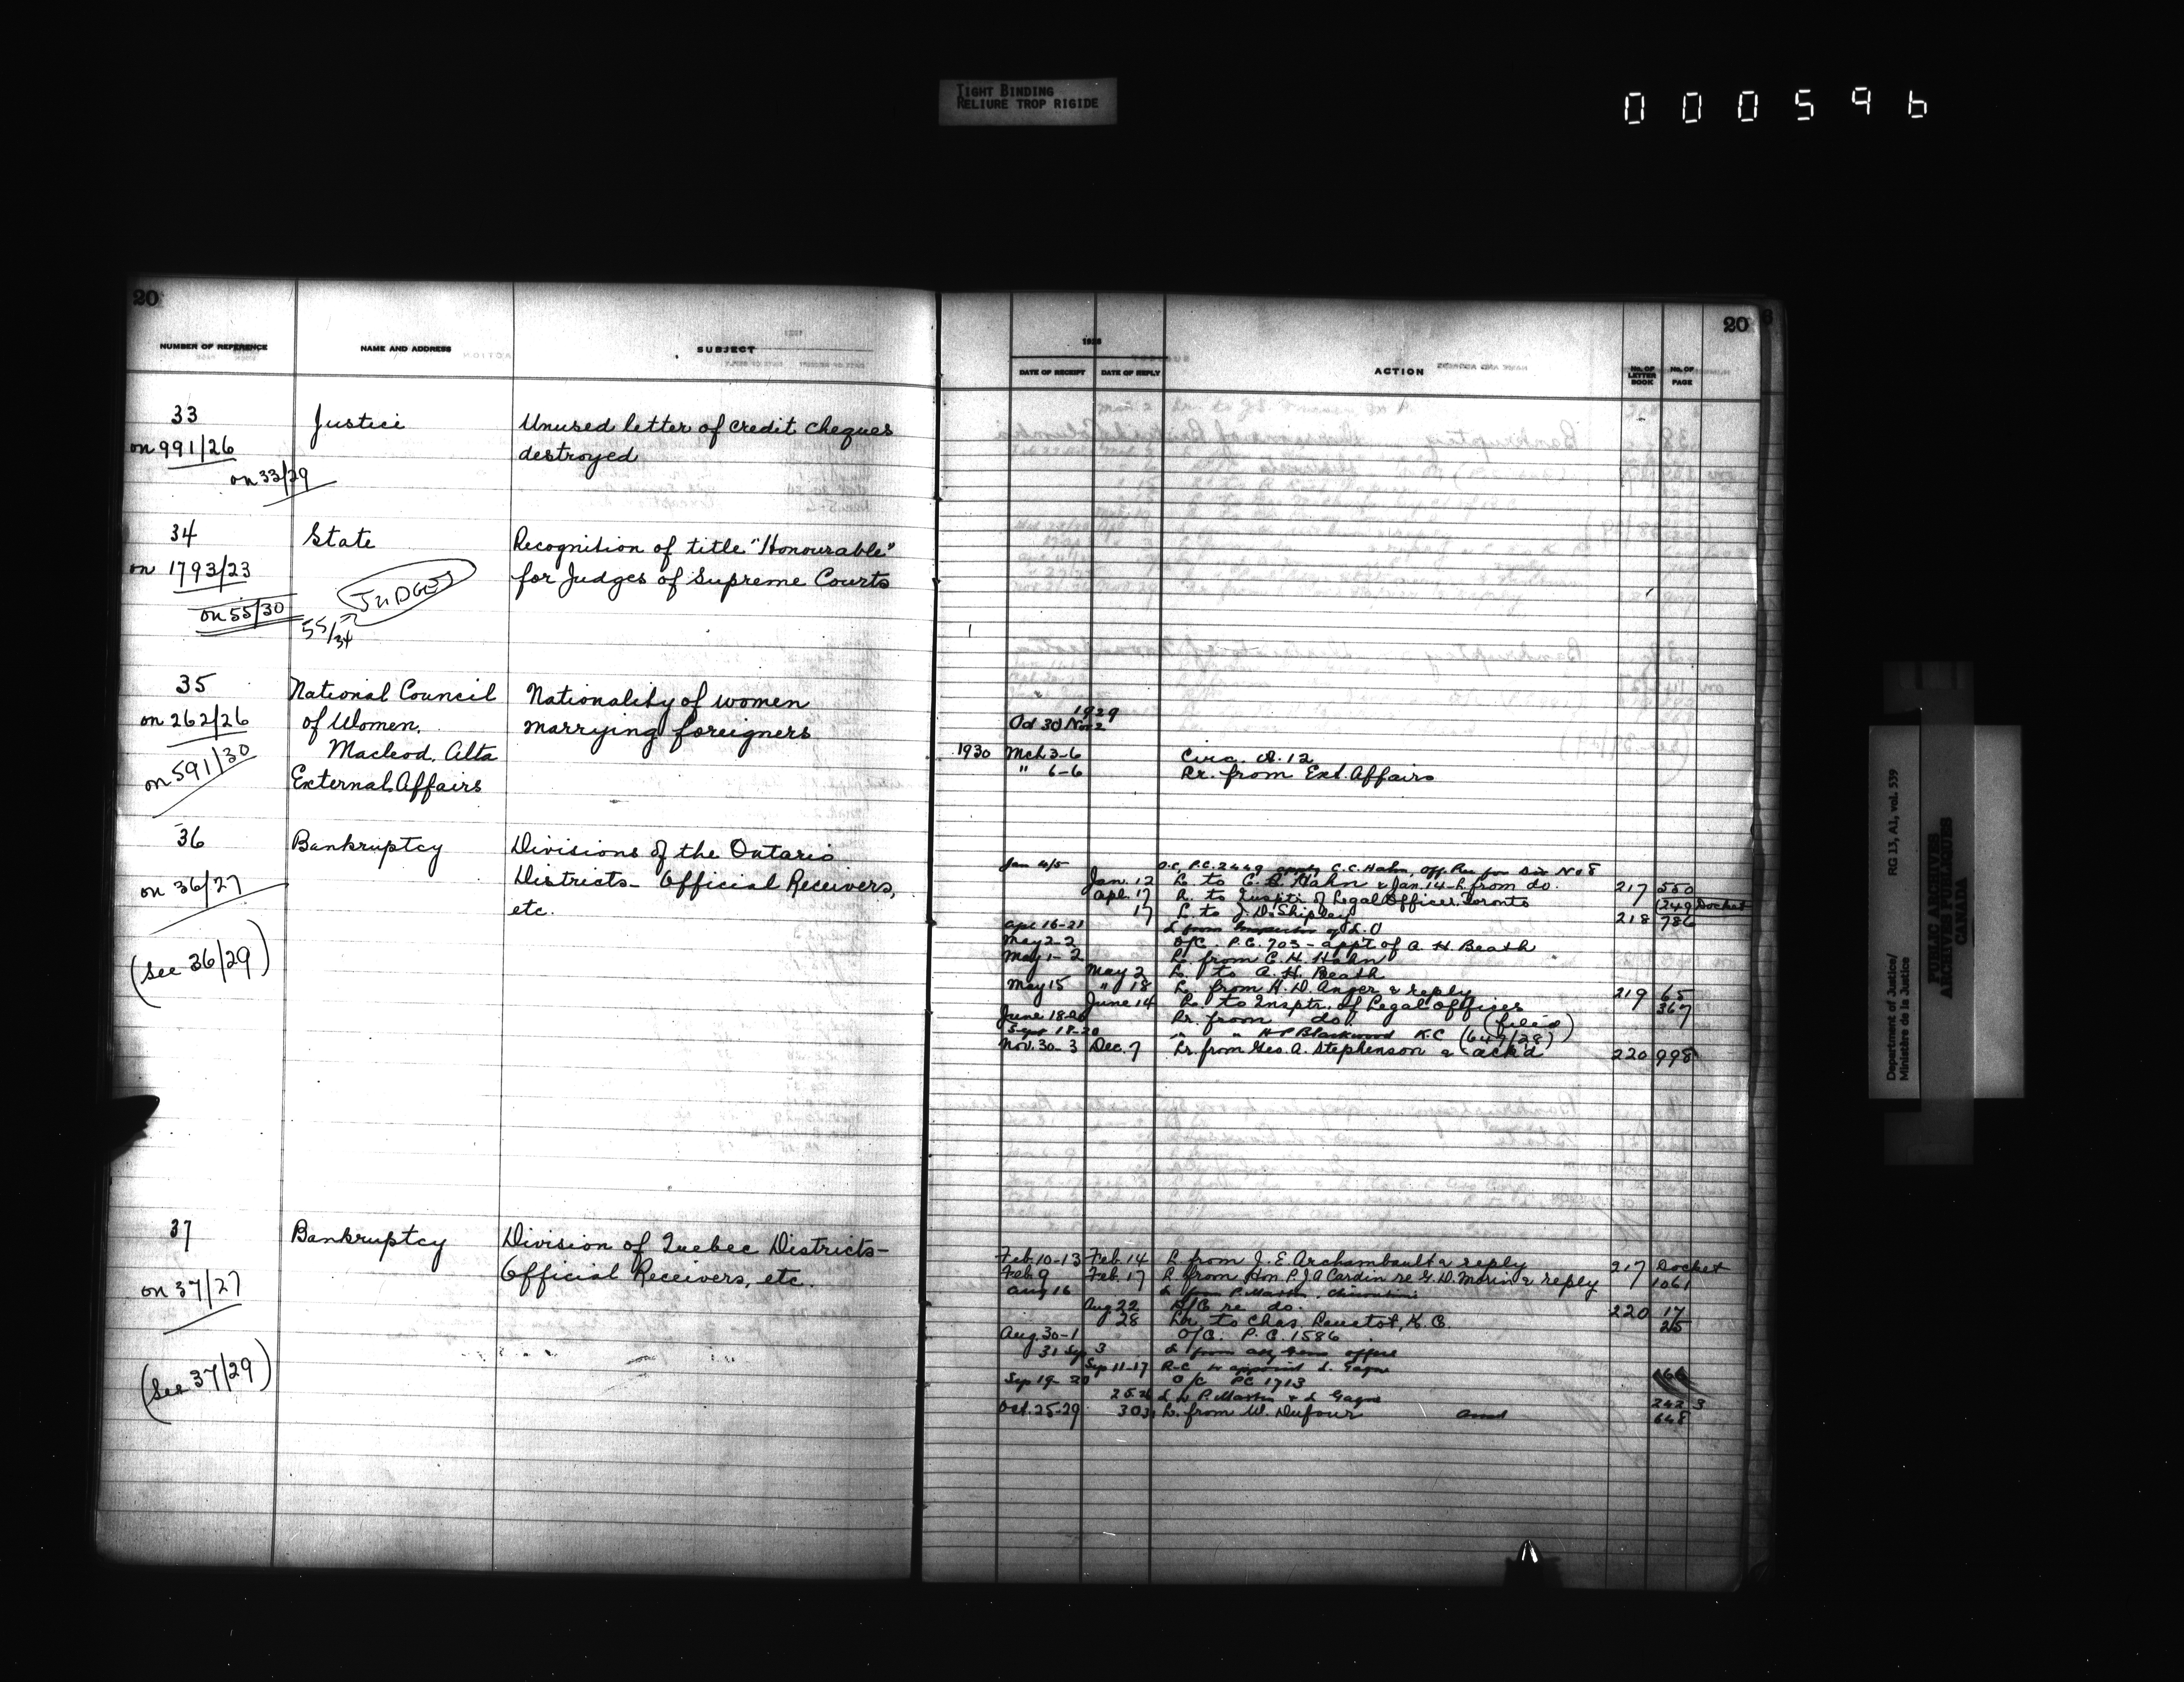 TIGHT BINDING
RELIURE TROP RIGIDE
000596
20
NUMBER OF REFERENCE NAME AND ADDRESS SUBJECT
33 Justice Unused letter of credit cheques
on 991/26 destroyed
on 33/29
34 State Recognition of title "Honourable"
on 1793/23 for Judges of Supreme Courts
JUDGES
on 55/30
55/34
35 National Council Nationality of women
on 262/26 of Women, marrying foreigners
on 591/30 Macleod, Alta
External Affairs
36 Bankruptcy Divisions of the Ontario
on 36/27 Districts - Official Receivers,
etc.
(See 36/29)
37 Bankruptcy Division of Quebec Districts -
on 37/27 Official Receivers, etc.
(See 37/29)
20
DATE OF RECEIPT DATE OF REPLY ACTION No. OF LETTER BOOK No. OF PAGE
1929
Oct 30 Nov 2
1930 Mch 3-6 Circ.
" 6-6 Lr. from Ext. Affairs
Jan 4/5 O.C. P.C. 2449 C.C. Hahn, Off. Rec for Div No 8
Jan. 12 L. to C. Hahn & Jan. 14 - L. from do. 217 550
Apl. 17 L. to Insptr. of Legal Offices Toronto 249 Docket
17 L. to J. D. Shipley 218 786
Apl 16-21 L from Inspector of L. O
May 2-2 O/C. P.C. 703 - app't of A. H. Beath
May 1-2 L. from C. H. Hahn
May 2 L. to A. H. Beath
May 15 " 18 L. from H. D. Anger & reply 219 65
June 14 L. to Insptr. of Legal Offices 367
June 18-20 Lr. from do. (filed)
Sept 18-20 " " H P Blackwood K.C (649/28)
Nov. 30-3 Dec. 7 Lr. from Geo. A. Stephenson & ack'd 220 998
Feb. 10-13 Feb. 14 L from J. E. Archambault & reply 217 Docket
Feb. 9 Feb. 17 L. from Hon. P. J. A Cardin re G. D. Morin & reply 1061
Aug 16 L from P. Martin, Chicoutimi
Aug 22 R/C re do. 220 17
28 Lr. to Chas. K. C. 25
Aug. 30-1 O/C. P. C. 1586
31 Sep 3 L from
Sep 11-17 R-C to appoint L. Gagne 166
Sep 19-20 O/C PC 1713
25 26 L to P. Martin & L Gagne 242 3
Oct. 25-29 30 31 L. from W. Dufour 648
Department of Justice/
Ministère de la Justice
RG 13, A1, vol. 539
PUBLIC ARCHIVES
ARCHIVES PUBLIQUES
CANADA